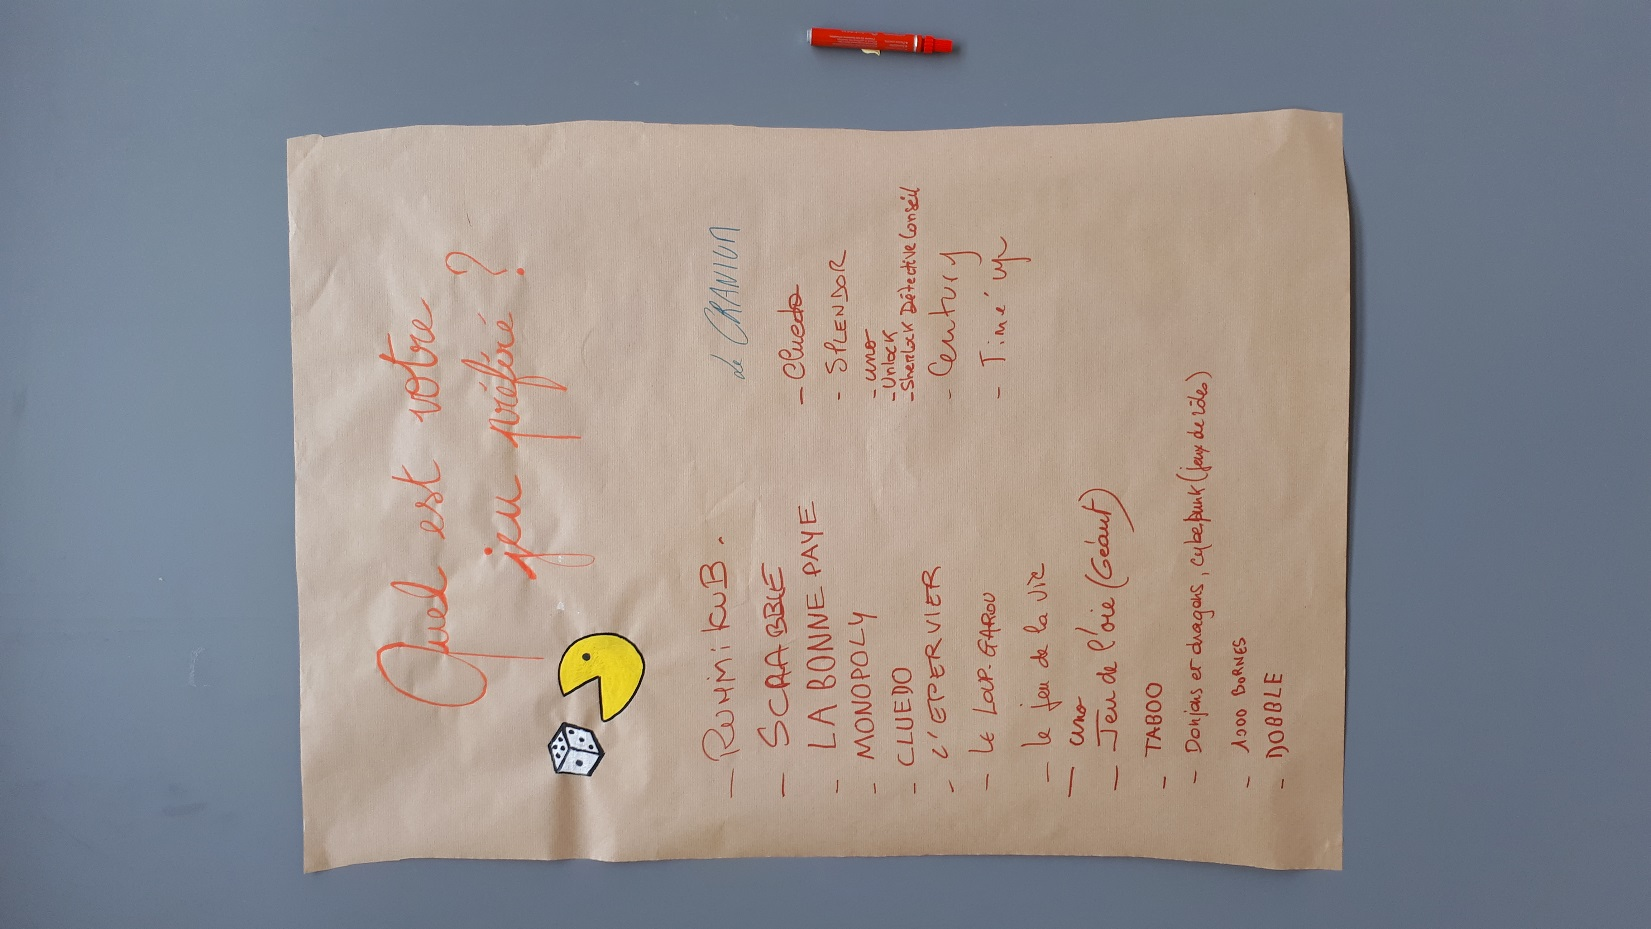 Quel est votre
jeu préféré ?
- RUMMIKUB.
- SCRABBLE
- LA BONNE PAYE
- MONOPOLY
- CLUEDO
- L'EPERVIER
- LE LOUP-GAROU
- le jeu de la vie
- uno
- Jeu de l'oie (Géant)
- TABOO
- Donjons et dragons, cyberpunk (jeux de rôles)
- 1000 BORNES
- DOBBLE
le CRANIUM
- Cluedo
- SPLENDOR
- uno
- Unlock
- Sherlock Détective Conseil
- Century
- Time's up